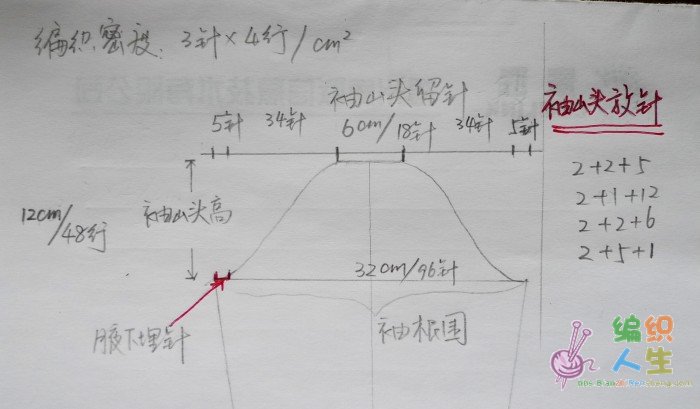 编织密度：3针×4行/cm²
袖山头留针
5针 34针 6cm/18针 34针 5针
袖山头高
12cm/48行
32cm/96针
腋下埋针
袖根围
袖山头放针
2+2+5
2+1+12
2+2+6
2+5+1
编织
人生
bbs.BianZhiRenSheng.com